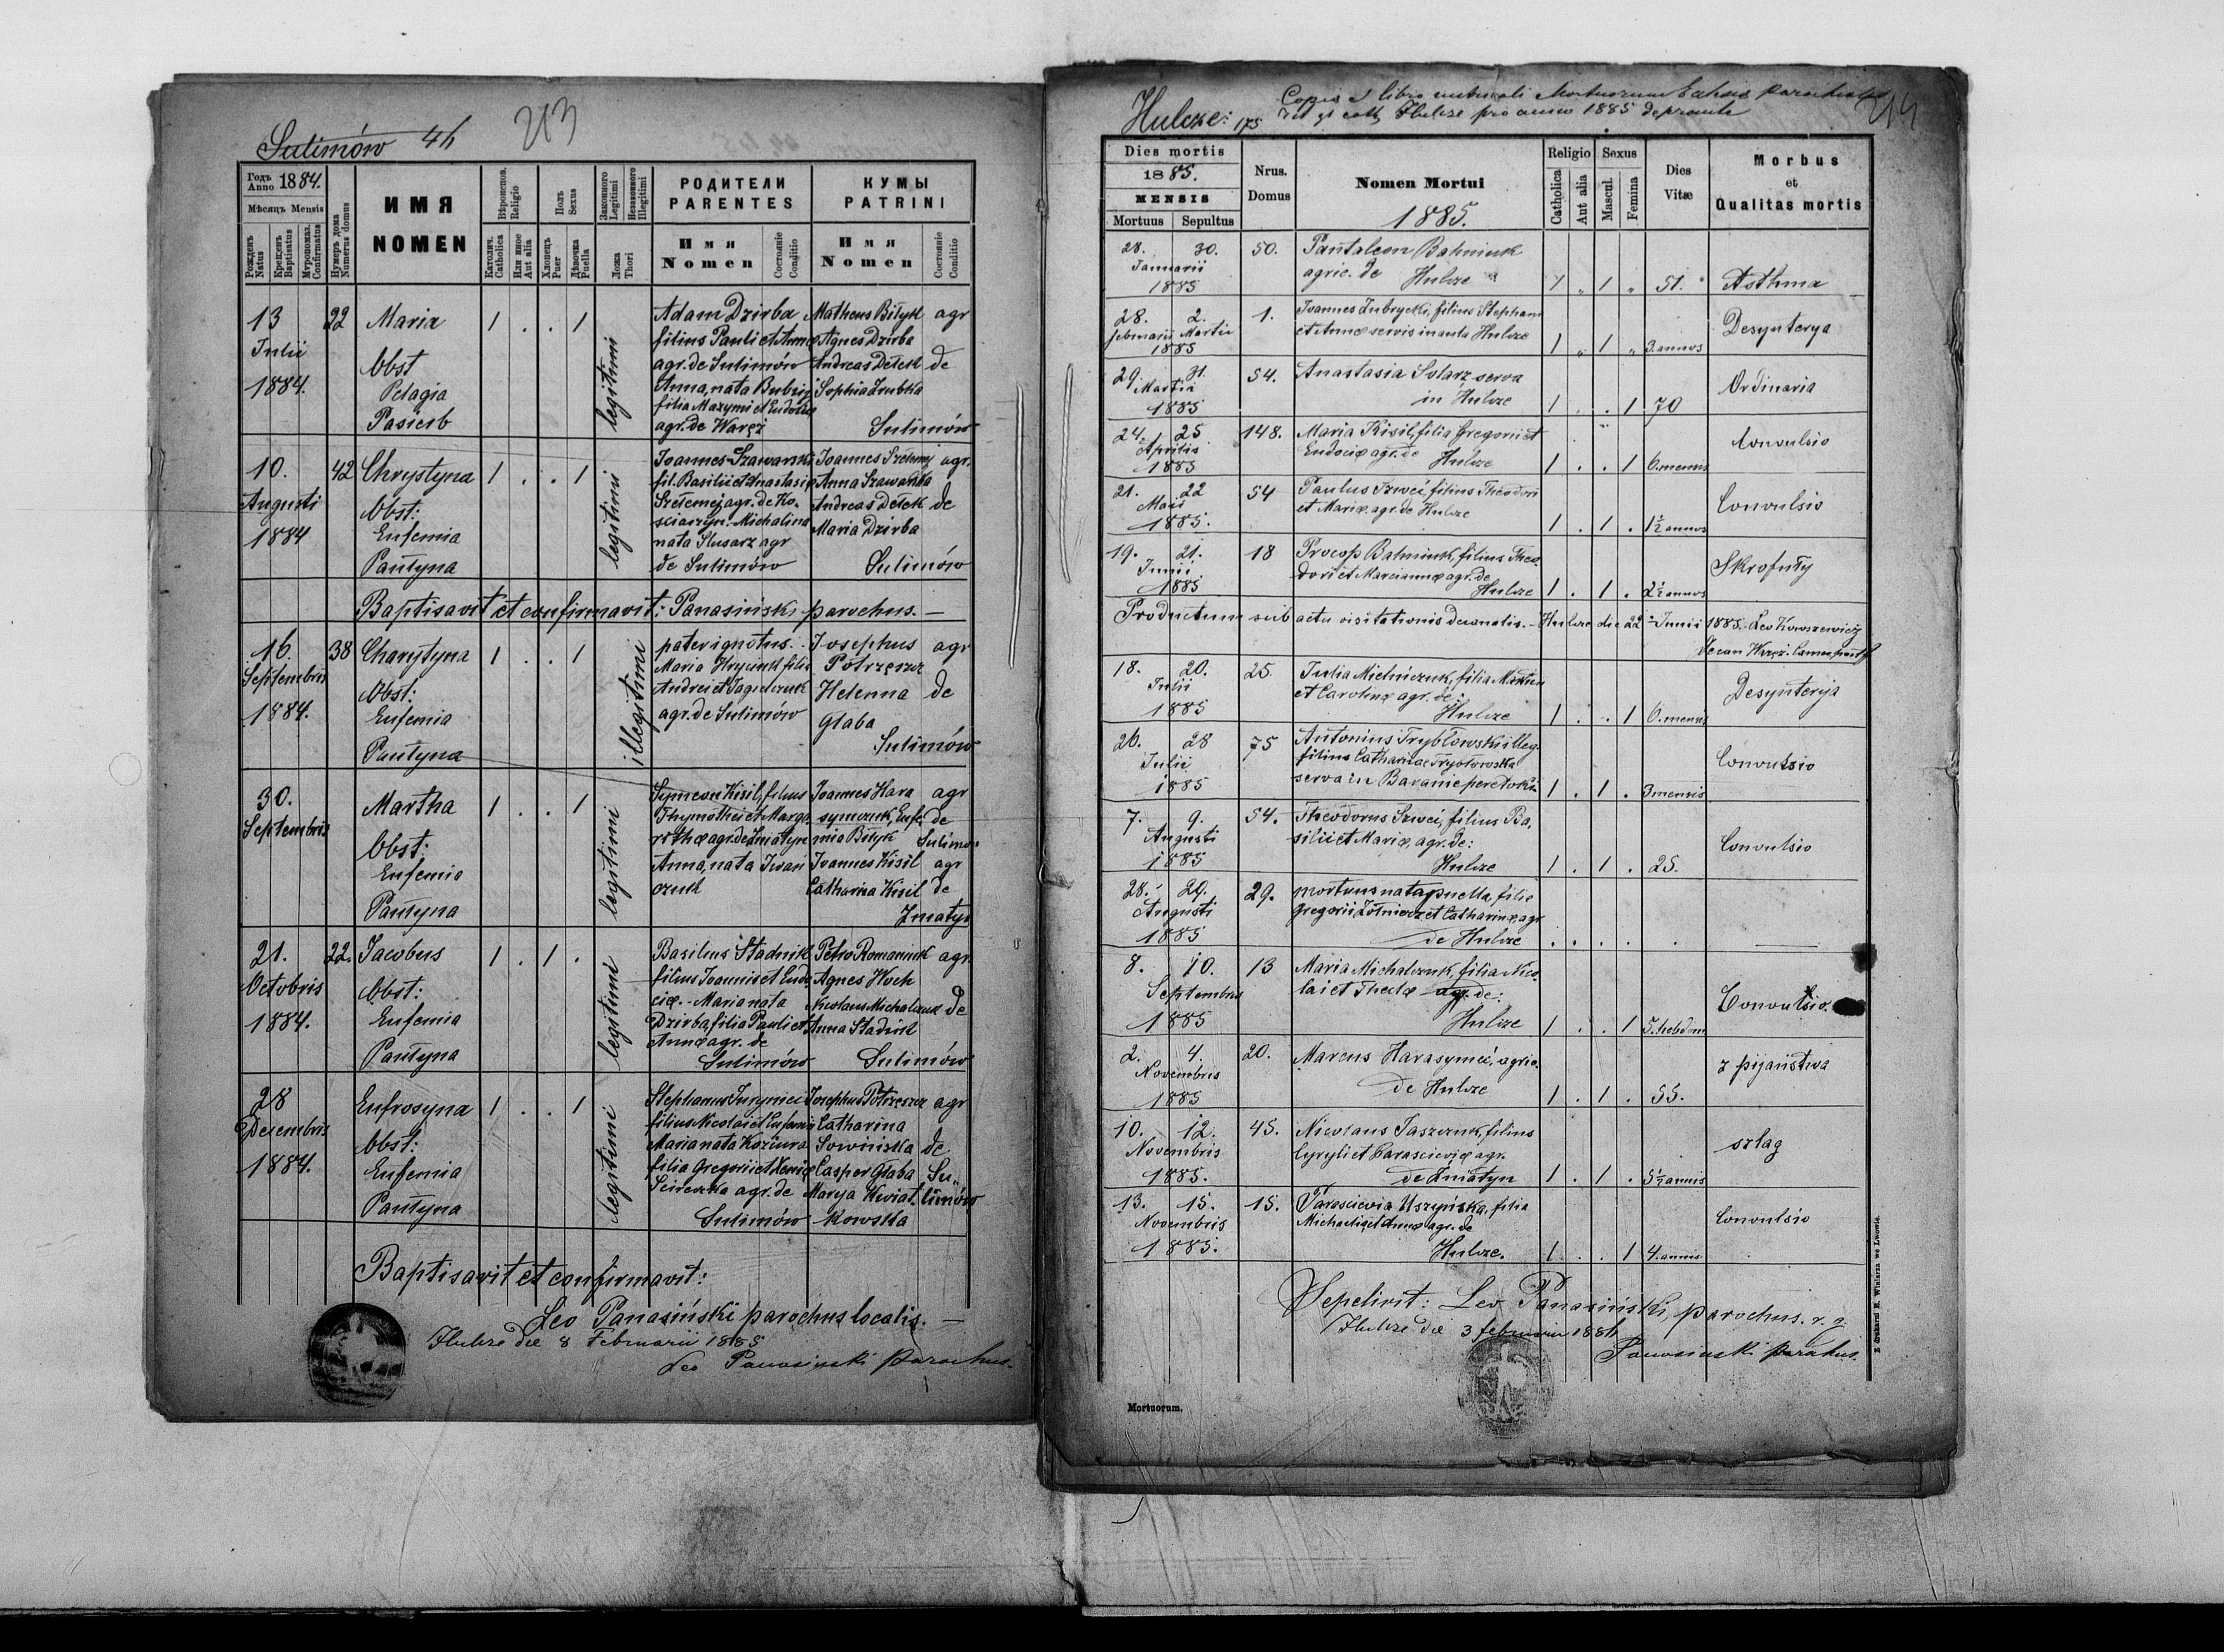 Sulimów 4h
213
Годъ Anno 1884.
Мѣсяцъ Mensis
Рожденъ Natus
Крещенъ Baptisatus
Муропомаз. Confirmatus
Нумеръ дома Numerus domus
ИМЯ
NOMEN
Вѣроиспов. Religio
Католич. Catholica
Или иное Aut alia
Полъ Sexus
Хлопецъ Puer
Дѣвочка Puella
Законного Legitimi
Незаконного Illegitimi
Ложа Thori
РОДИТЕЛИ
PARENTES
Имя
Nomen
Состояніе Conditio
КУМЫ
PATRINI
Имя
Nomen
Состояніе Conditio
13 Julii 1884.
22
Maria
Obst
Pelagia
Pasieib
1 . . 1
legitimi
Adam Dzirba
filius Pauli et Annæ
agr. de Sulimów
Anna, nata
filia Maxymi et Eudoxiæ
agr. de Waręż
Matheus Biłyk agr
Agnes Dzirba
Andreas Detek de
Sophia Zrubka
Sulimów
10. Augusti 1884
42
Chrystyna
Obst:
Eufemia
Pautyna
1 . . 1
legitimi
Joannes Szawarski
fil. Basilii et Anastasiæ
Szetemej agr. de Ko-
sciaszyn. Michalina
nata Slusarz agr
de Sulimów
Joannes Szetemej agr.
Anna Szawarska
Andreas Detek de
Maria Dzirba
Sulimów
Baptisavit et confirmavit: Panasiński parochus. —
16. Septembris 1884.
38
Charytyna
Obst:
Eufemia
Pautyna
1 . . 1
illegitimi
pater ignotus.
Maria Hryciuk filia
Andrei et
agr. de Sulimów
Josephus agr
Potrzeszcz
Helenna de
Głaba
Sulimów
30. Septembris
Martha
Obst:
Eufemia
Pautyna
1 . . 1
legitimi
Symeon Kisil, filius
Thymothei et Marga-
rethæ agr. de Zmatyn
Anna, nata Iwasi
czuk
Joannes Hara agr
symczuk, Eufe- de
mia Biłyk Sulimów
Joannes Kisil agr
Catharina Kisil de
Zmatyn
21. Octobris 1884.
22.
Jacobus
Obst:
Eufemia
Pautyna
1 . 1 .
legitimi
Basilius Stadnik
filius Joannis et Eudo-
ciæ. - Maria nata
Dzirba, filia Pauli et
Annæ agr. de
Sulimów
Petro Romaniuk agr.
Agnes Huck
Nicolaus Michalczuk de
Anna Stadnik
Sulimów
28 Decembris 1884.
Eufrosyna
Obst:
Eufemia
Pautyna
1 . . 1
legitimi
Stephanus
filius Nicolai et Eufemiæ
Maria nata Koziura
filia Gregorii et Xeniæ
agr. de
Sulimów
Josephus Potrzeszcz agr
Catharina
Sowinska de
Casper Głaba Su-
Marya Kwiat- limów
kowska
Baptisavit et confirmavit:
Leo Panasiński parochus localis. —
Hulcze die 8 Februarii 1885
Leo Panasinski Parochus.
Hulcze: 175
Copia libri Mortuorum parochialis
Hulcze pro anno 1885
214
Dies mortis
1885.
MENSIS
Mortuus Sepultus
Nrus. Domus
Nomen Mortui
1885.
Religio
Catholica
Aut alia
Sexus
Mascul.
Femina
Dies Vitæ
Morbus
et
Qualitas mortis
28. 30. Januarii 1885
50.
Pantaleon Bahniuk
agric. de Hulcze
1 „ 1 „ 51.
Asthma
28. februarii 2. Martii 1885
1.
Joannes Zubrycki, filius Stephani
et Annæ servis in aula Hulcze
1 „ 1 „ 3. annos
Desynterya
29. 31. Martii 1885
54.
Anastasia Solarz serva
in Hulcze
1 . . 1 70
Ordinaria
24. 25 Aprilis 1885
148.
Maria Kisil, filia Gregorii et
Eudociæ agr. de Hulcze
1 . . 1 6. mensis
Convulsio
21. 22 Maii 1885.
54
Paulus Szwei, filius Theodori
et Mariæ agr. de Hulcze
1 . 1 . 1½ annos
Convulsio
19. 21. Junii 1885
18
Procop Bahniuk, filius Theo-
dori et Mariannæ agr. de
Hulcze
1 . 1 . 2½ annos
Skrofuły
Productum sub actu visitationis decanalis. - Hulcze die 22 Junii 1885. Leo Kowszewicz
Decan Waręż.
18. 20. Julii 1885
25.
Julia Mielniczuk, filia Martini
et Carolinæ agr. de:
Hulcze
1 . . 1 6. mensis
Desynterja
26. 28 Julii 1885
75
Antonius Trybłowski illeg.
filius Catharinae Trybłowska
serva in Baranie peretoki
1 . 1 . 3 mensis
Convulsio
7. 9. Augusti 1885
54.
Theodorus Szwei, filius Ba-
silii et Mariæ, agr. de:
Hulcze
1 . 1 . 25.
Convulsio
28. 29. Augusti 1885
29.
mortua nata puella, filia
Gregorii Zołnierz et Catharinæ, agr
de Hulcze
. . . . .
8. 10. Septembris 1885
13
Maria Michalczuk, filia Nico-
lai et Theclæ agr. de:
Hulcze
1 . . 1 5. hebdom
Convulsio.
2. 4. Novembris 1885
20.
Marcus Harasymei, agric.
de Hulcze
1 . 1 . 55.
z pijaństwa
10. 12. Novembris 1885.
45.
Nicolaus Jaszczuk, filius
Cyryli et Parasceviæ agr.
de Zmatyn
1 . 1 . 5½ annis
szlag
13. 15. Novembris 1885.
15.
Parascevia Uszyńska, filia
Michaelis et Annæ agr. de
Hulcze.
1 . . 1 4. annis
Convulsio
Sepelivit: Leo Panasiński, parochus.
Hulcze die 3 februarii 1886
Panasinski Parochus.
Mortuorum.
Z drukarni E. Winiarza we Lwowie.